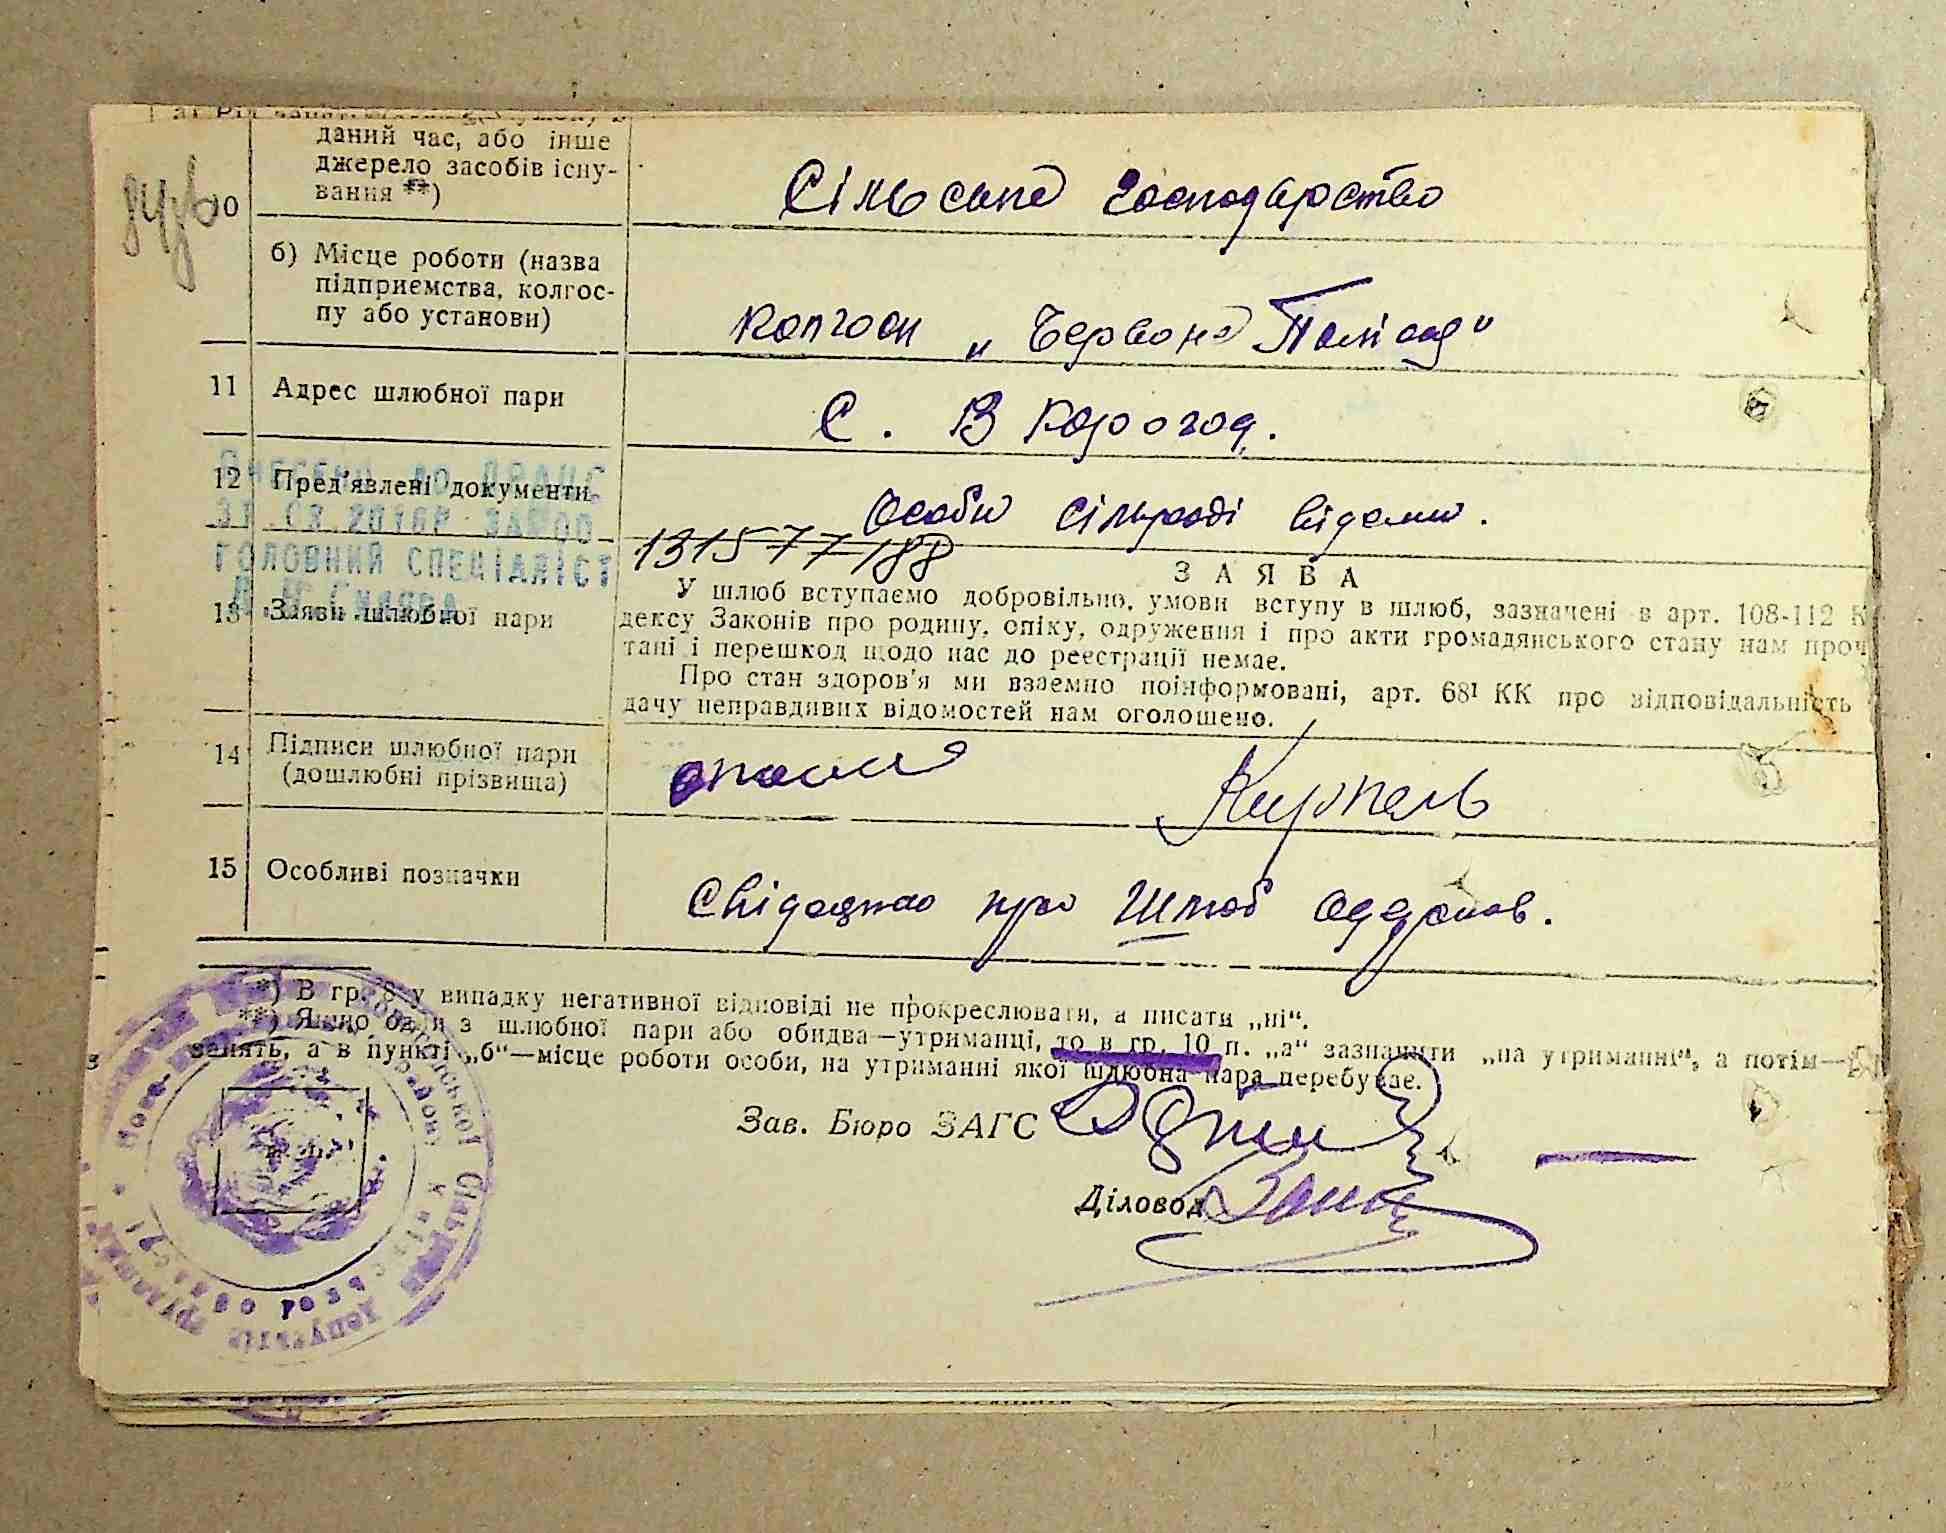 даний час, або інше
джерело засобів існу-
10 вання **) Сільське господарство
б) Місце роботи (назва
підприємства, колгос-
пу або установи) колгосп „Червоне Полісся"
11 Адрес шлюбної пари С. В Корогод.
12 Пред'явлені документи Особи сільраді відоми.
ВНЕСЕНО ДО ДРАЦС
31.08.2016Р ЗА №00
131577188
ГОЛОВНИЙ СПЕЦІАЛІСТ
ЗАЯВА
13 Заяви шлюбної пари У шлюб вступаємо добровільно, умови вступу в шлюб, зазначені в арт. 108-112 К
дексу Законів про родину, опіку, одруження і про акти громадянського стану нам проч
тані і перешкод щодо нас до реєстрації немає.
Про стан здоров'я ми взаємно поінформовані, арт. 68¹ КК про відповідальність
дачу неправдивих відомостей нам оголошено.
14 Підписи шлюбної пари
(дошлюбні прізвища)
15 Особливі позначки Свідоцтво про Шлюб одержав.
*) В гр. 8 у випадку негативної відповіді не прокреслювати, а писати „ні".
**) Якщо один з шлюбної пари або обидва—утриманці, то в гр. 10 п. „а" зазначити „на утриманні", а потім—
занять, а в пункті „б"—місце роботи особи, на утриманні якої шлюбна пара перебуває.
Зав. Бюро ЗАГС
Діловод